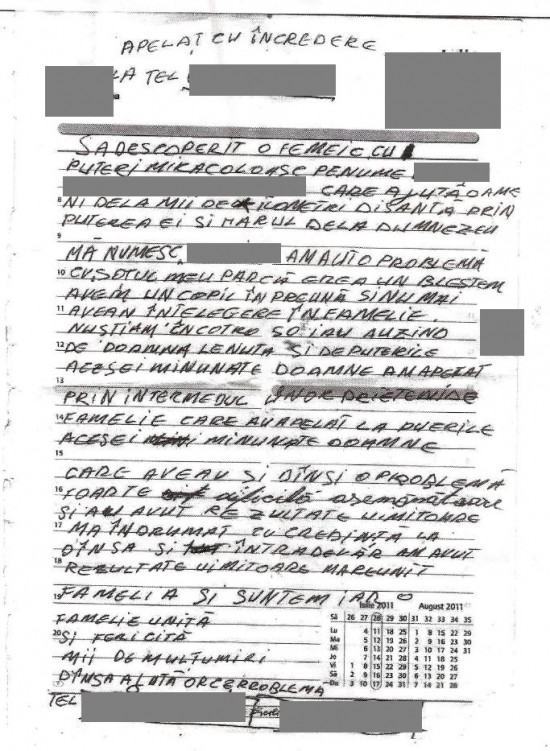 APELAȚ CU ÎNCREDERE
LA TEL
SADESCOPERIT O FEMEIE CU
PUTERI MIRACOLOASE PENUME
CARE AJUTĂ OAME
8 NI DE LA MII DE KILOMETRI DISANTĂ PRIN
PUTEREA EI SI HARUL DELA DUMNEZEU
9
MĂ NUMESC AM AUTO PROBLEMĂ
10 CU SOTUL MEU PARCĂ EREA UN BLESTEM
AVEM UN COPIL ÎNPREUNĂ SI NU MAI
11 AVEAN ÎNTELEGERE ÎN FAMELIE.
NUSTIAM ÎNCOTRO SO IAU AUZIND
12 DE DOAMNA LENUTA SI DEPUTERILE
ACESEI MINUNATE DOAMNE AM APELAT
13
PRIN INTERMEDUL UNOR PRIETENI DE
14 FAMELIE CARE AU APELAT LA PUERILE
ACESEI MINUNATE DOAMNE
15
CARE AVEAU SI DÎNSI O PROBLEMĂ
16 FOARTE dificilă asemănătoare
SI AU AVUT REZULTATE UIMITOARE
17 MA ÎNDRUMAT CU CREDINTA LA
DÎNSA SI ÎNTRADEVĂR AM AVUT
18 REZULTATE UIMITOARE MAREUNIT
19 FAMELIA SI SUNTEM IAR O
FAMELIE UNITĂ
20 SI FERICITĂ
MII DE MULTUMIRI
DÎNSA AJUTĂ ORCE PROBLEMĂ
TEL
Iulie 2011 August 2011
Să 26 27 28 29 30 31 32 33 34 35
Lu 4 11 18 25 1 8 15 22 29
Ma 5 12 19 26 2 9 16 23 30
Mi 6 13 20 27 3 10 17 24 31
Jo 7 14 21 28 4 11 18 25
Vi 1 8 15 22 29 5 12 19 26
Sâ 2 9 16 23 30 6 13 20 27
Du 3 10 17 24 31 7 14 21 28